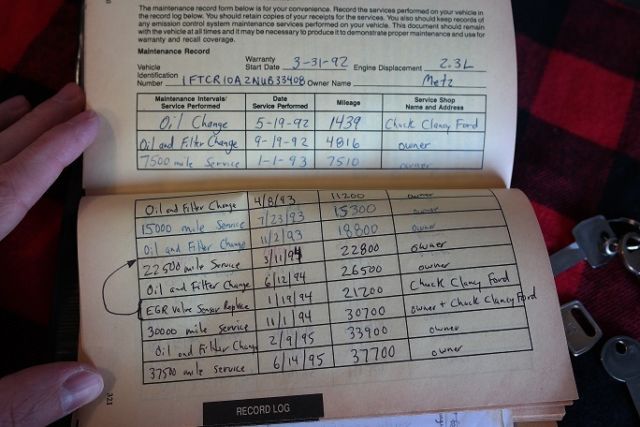 The maintenance record form below is for your convenience. Record the services performed on your vehicle in
the record log below. You should retain copies of your receipts for the services. You also should keep records of
any emission control system maintenance services performed on your vehicle. This document should remain
with the vehicle at all times and it may be necessary to produce it to demonstrate proper maintenance and use for
warranty and recall coverage.
Maintenance Record
Vehicle Identification Number 1FTCR10A2NUB33408 Warranty Start Date 3-31-92 Engine Displacement 2.3L
Owner Name Metz
Maintenance Intervals/ Service Performed Date Service Performed Mileage Service Shop Name and Address
Oil Change 5-19-92 1439 Chuck Clancy Ford
Oil and Filter Change 9-19-92 4816 owner
7500 mile Service 1-1-93 7510 owner
Oil and Filter Change 4/8/93 11200 owner
15000 mile Service 7/23/93 15300 owner
Oil and Filter Change 11/2/93 18800 owner
22500 mile Service 3/11/94 22800 owner
Oil and Filter Change 6/12/94 26500 owner
EGR Valve Sensor Replace 1/19/94 21200 Chuck Clancy Ford
30000 mile Service 11/1/94 30700 owner + Chuck Clancy Ford
Oil and Filter Change 2/9/95 33900 owner
37500 mile Service 6/14/95 37700 owner
321
RECORD LOG